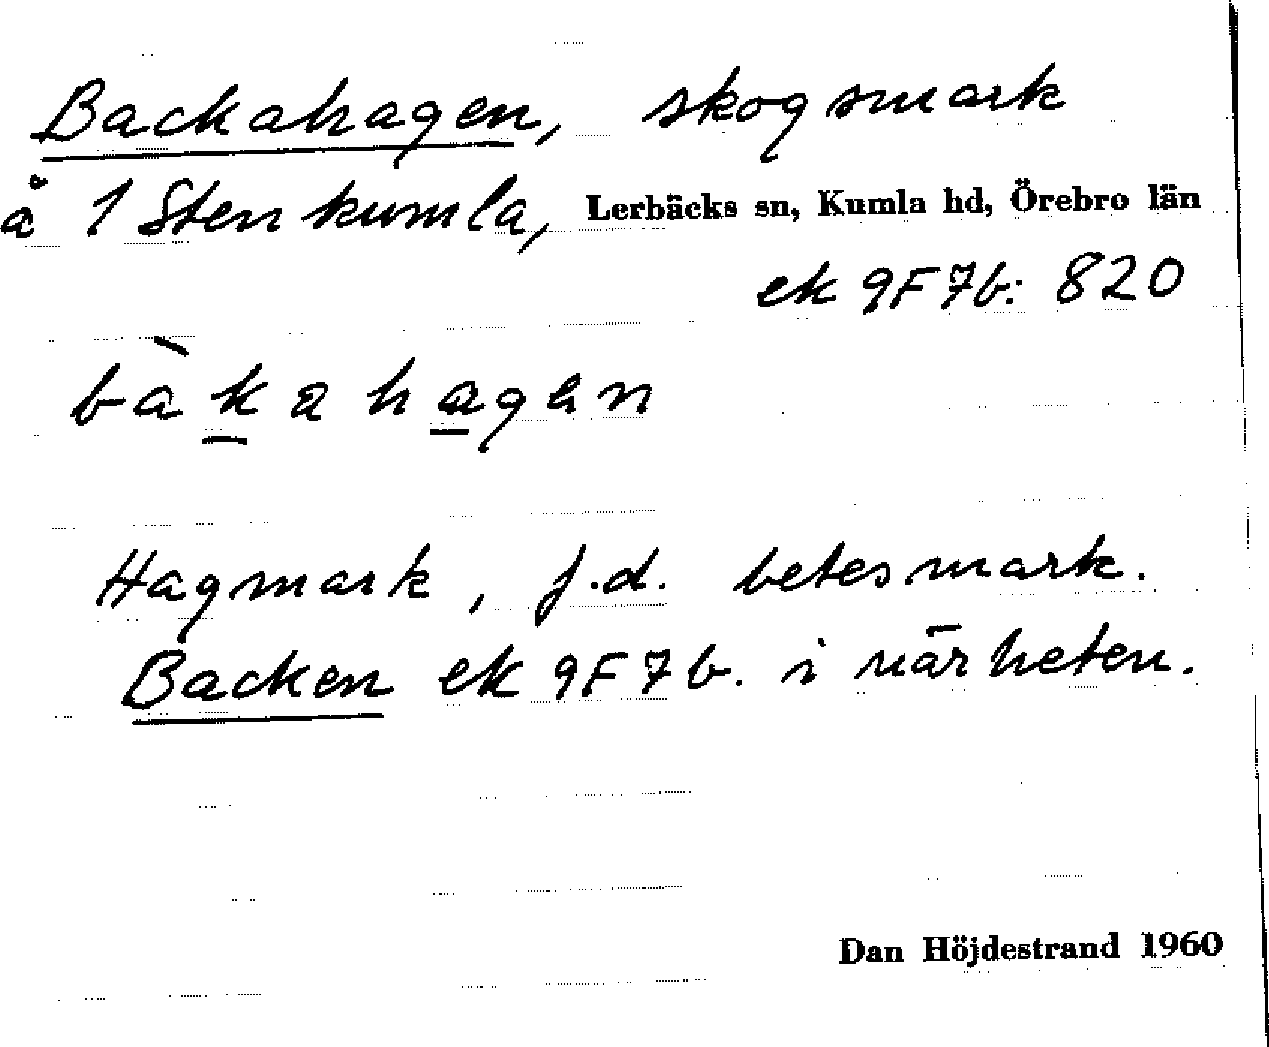 Backahagen, skogsmark
å 1 Stenkumla, Lerbäcks sn, Kumla hd, Örebro län
ek 9F7b: 820
bàkahagen
Hagmark, f.d. betesmark.
Backen ek 9F7b. i närheten.
Dan Höjdestrand 1960